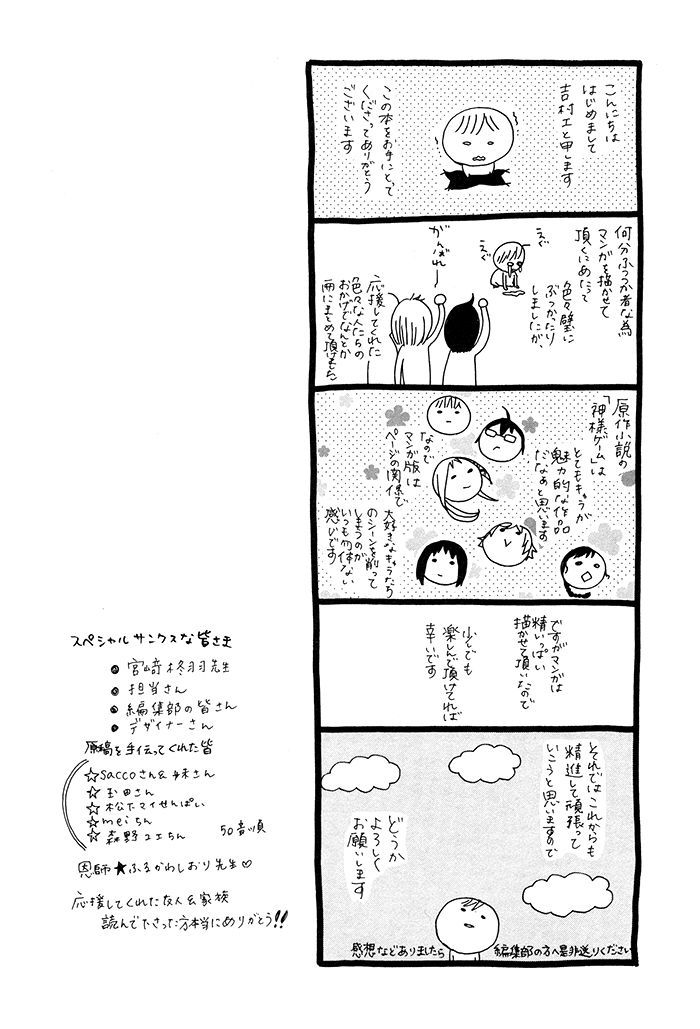 こんにちは
はじめまして
吉村エと申します
この本をお手にとって
くださってありがとう
ございます
何分ふつつか者な為
マンガを描かせて
頂くにあたって
色々壁に
ぶつかったり
しましたが、
えぐ
えぐ
がんばれー
応援してくれた
色々な人たちの
おかげでなんとか
冊にまとめて頂けました
原作小説の
「神様ゲーム」は
とてもキャラが
魅力的な作品
だなぁと思います。
なので
マンガ版は
ページの関係で
大好きなキャラたち
のシーンを削って
しまうのが
いつも勿体ない
感じです
ですがマンガは
精いっぱい
描かせて頂いたので
少しでも
楽しんで頂けてれば
幸いです
それではこれからも
精進して頑張って
いこうと思いますので
どうか
よろしく
お願いします
感想などありましたら
編集部の方へ是非送りください
スペシャルサンクスな皆さま
● 宮﨑柊羽先生
● 担当さん
● 編集部の皆さん
● デザイナーさん
原稿を手伝ってくれた皆
☆saccoさん&妹さん
☆玉田さん
☆松下マイせんぱい
☆meiちん
☆森野ユエちん
50音順
恩師★ふるかわしおり先生♡
応援してくれた友人&家族
読んで下さった方本当にありがとう!!